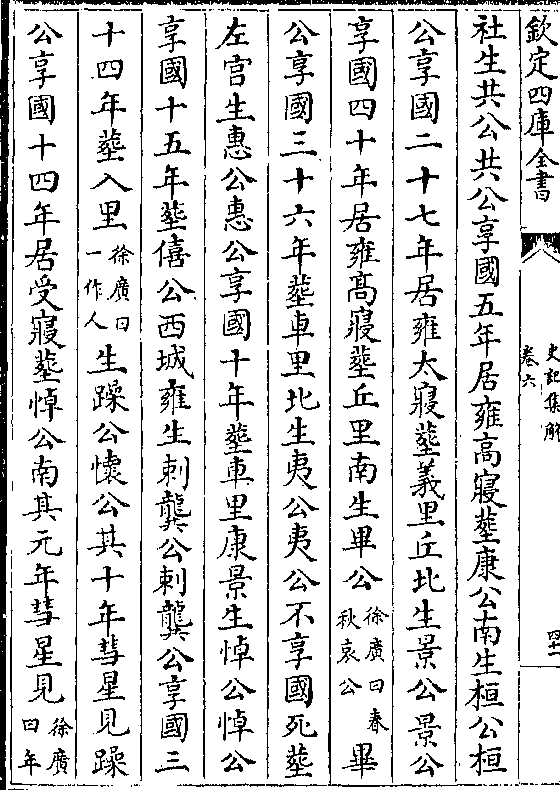 欽定四庫全書
史記集解
卷六
四十一
社生共公共公享國五年居雍高寢塟康公南生桓公桓
公享國二十七年居雍太寢塟義里丘北生景公景公
享國四十年居雍高寢塟丘里南生畢公徐廣曰春秋哀公畢
公享國三十六年塟車里北生夷公夷公不享國死塟
左宫生惠公惠公享國十年塟車里康景生悼公悼公
享國十五年塟僖公西城雍生刺龔公刺龔公享國三
十四年塟入里徐廣曰一作人生躁公懷公其十年彗星見躁
公享國十四年居受寢塟悼公南其元年彗星見徐廣曰年